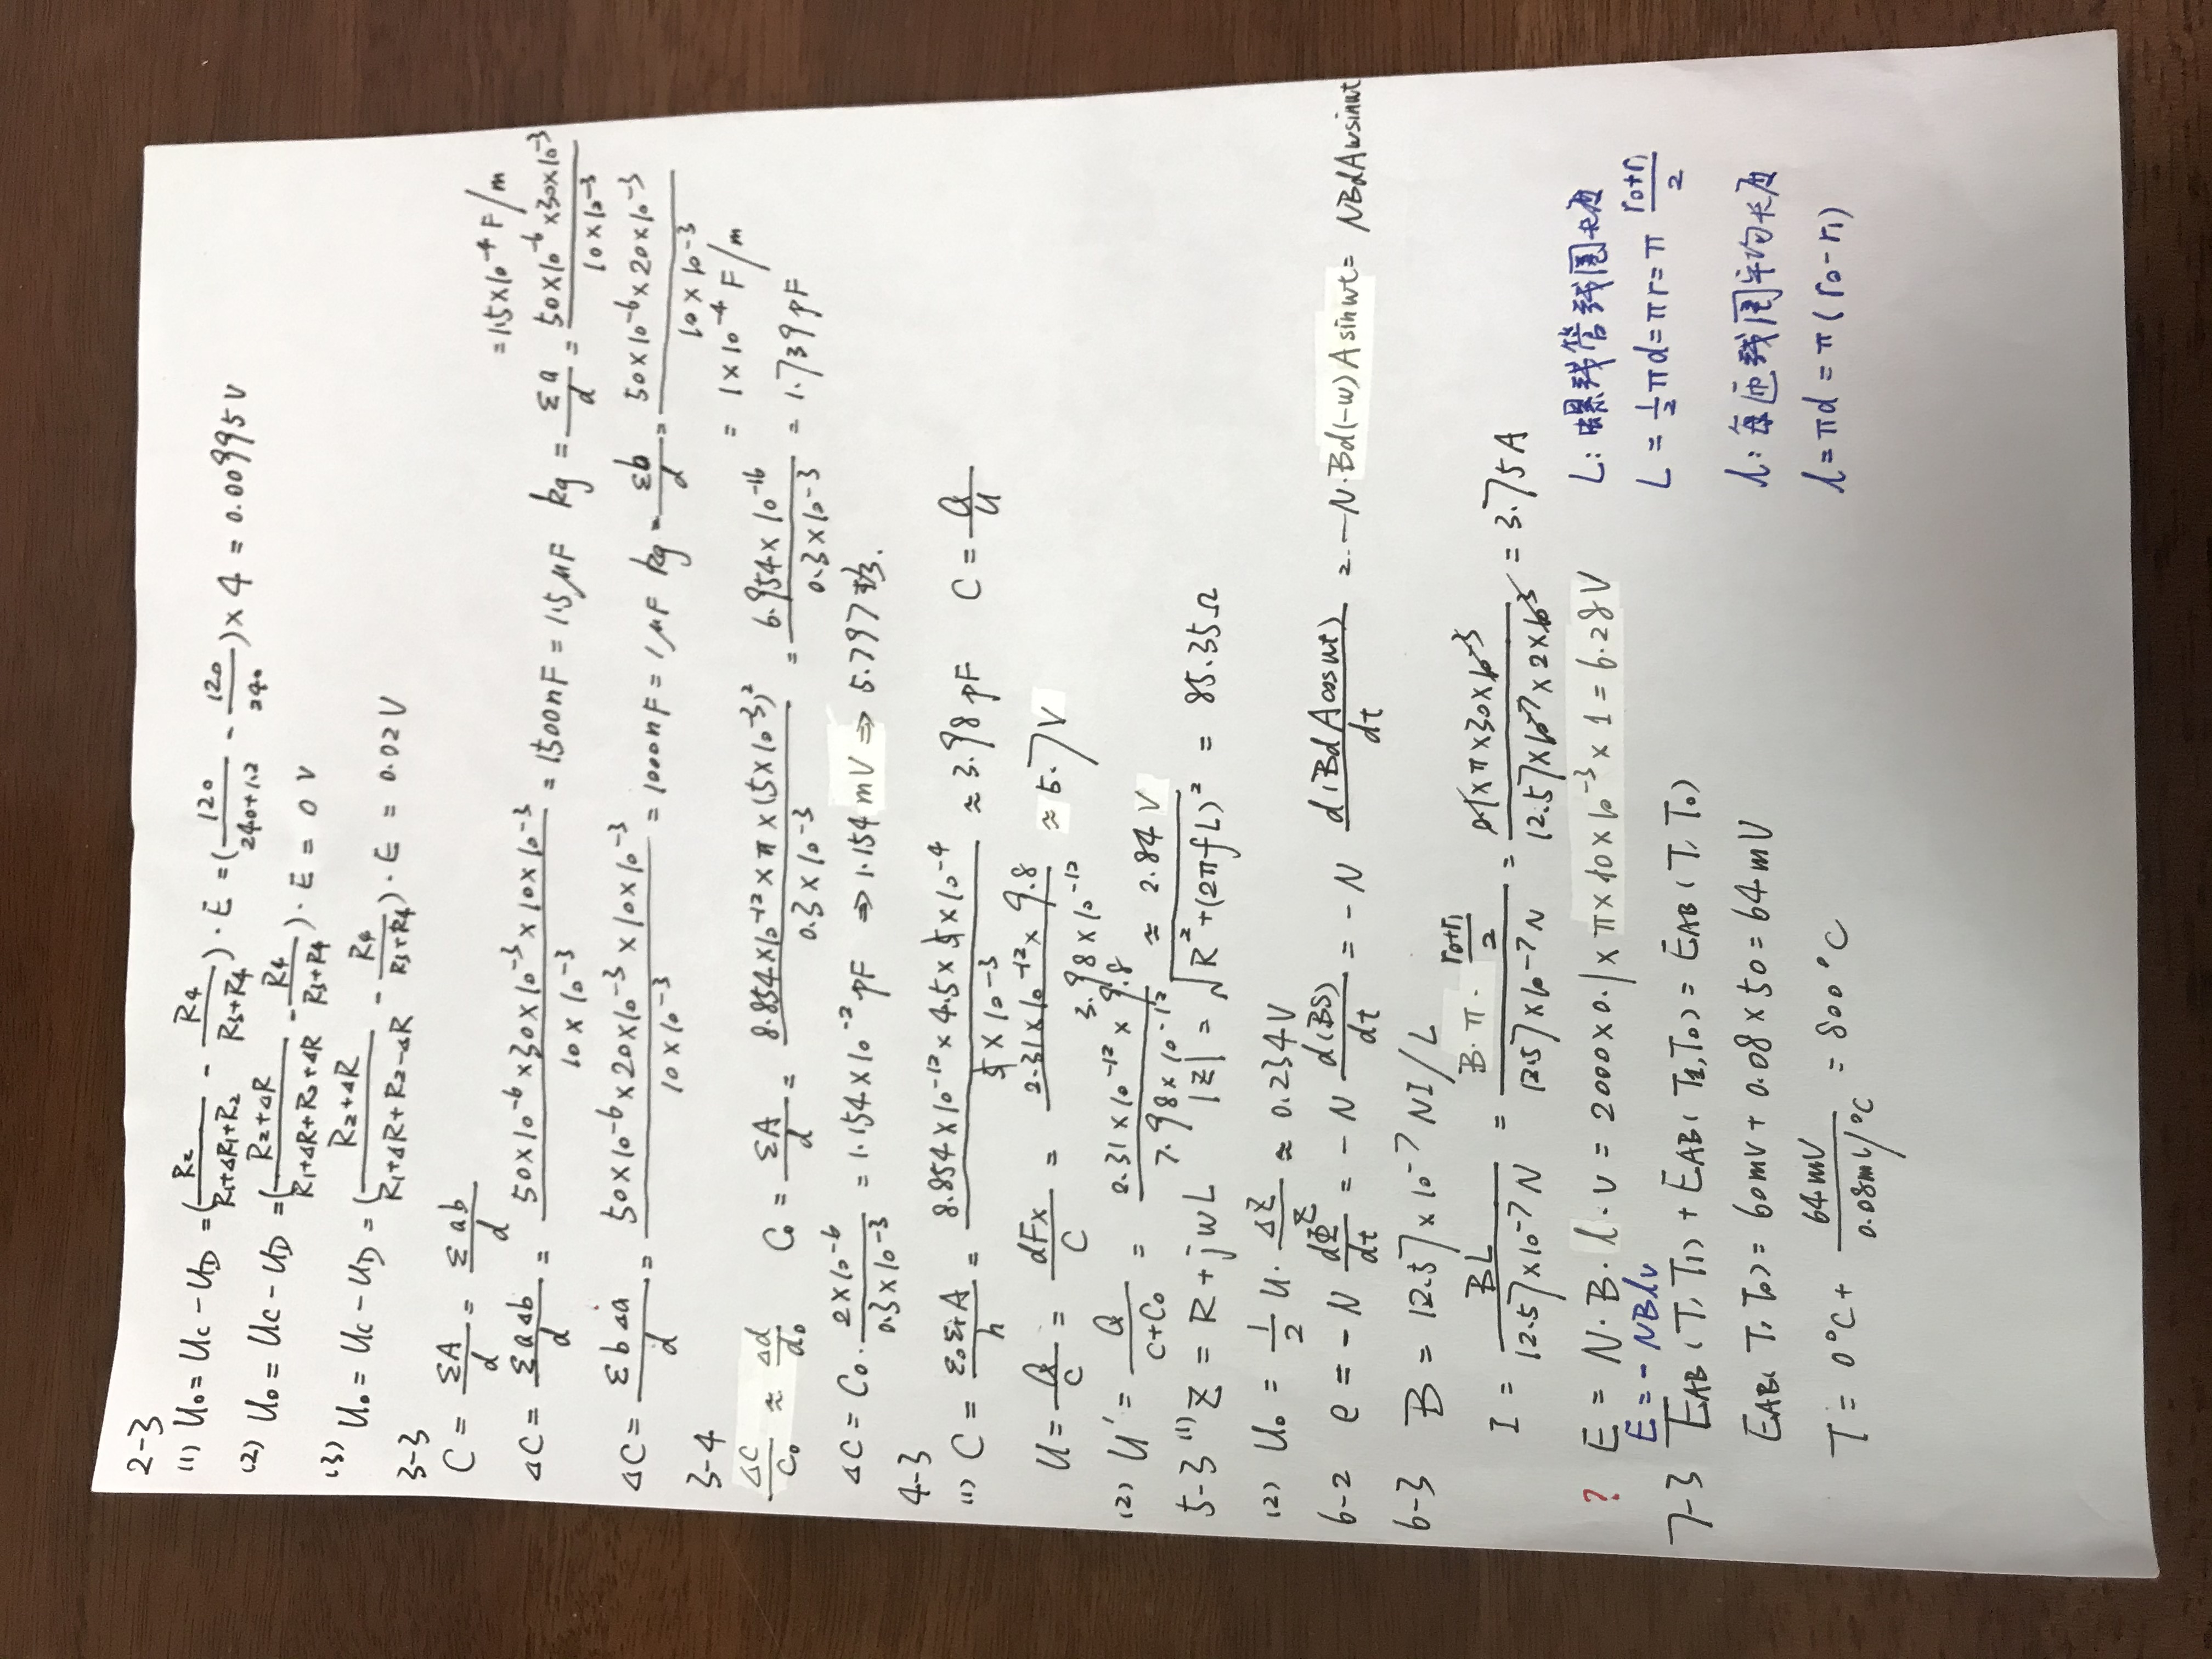 2-3
(1) U₀ = Uc - U_D = (R₂/(R₁+ΔR₁+R₂) - R₄/(R₃+R₄)) · E = (120/(240+1.2) - 120/240) × 4 = 0.00995 V
(2) U₀ = Uc - U_D = ((R₂+ΔR)/(R₁+ΔR+R₂+ΔR) - R₄/(R₃+R₄)) · E = 0 V
(3) U₀ = Uc - U_D = ((R₂+ΔR)/(R₁+ΔR+R₂-ΔR) - R₄/(R₃+R₄)) · E = 0.02 V
3-3
C = εA/d = εab/d
ΔC = εaΔb/d = (50×10⁻⁶×30×10⁻³×10×10⁻³)/(10×10⁻³) = 1500nF = 1.5μF kg = εa/d = (50×10⁻⁶×30×10⁻³)/(10×10⁻³) = 1.5×10⁻⁴ F/m
ΔC = εbΔa/d = (50×10⁻⁶×20×10⁻³×10×10⁻³)/(10×10⁻³) = 1000nF = 1μF kg = εb/d = (50×10⁻⁶×20×10⁻³)/(10×10⁻³) = 1×10⁻⁴ F/m
3-4
ΔC/C₀ ≈ Δd/d₀ C₀ = εA/d = (8.854×10⁻¹²×π×(5×10⁻³)²)/(0.3×10⁻³) = (6.954×10⁻¹⁶)/(0.3×10⁻³) = 1.739pF
ΔC = C₀·(2×10⁻⁶)/(0.3×10⁻³) = 1.154×10⁻²pF ⇒ 1.154mV ⇒ 5.797格.
4-3
(1) C = ε₀εᵣA/h = (8.854×10⁻¹²×4.5×5×10⁻⁴)/(5×10⁻³) ≈ 3.98pF C = Q/U
U = Q/C = dFx/C = (2.31×10⁻¹²×9.8)/(3.98×10⁻¹²) ≈ 5.7V
(2) U' = Q/(C+C₀) = (2.31×10⁻¹²×9.8)/(7.98×10⁻¹²) ≈ 2.84 V
5-3 (1) Z = R+jwL |Z| = √(R²+(2πfL)²) = 85.35Ω
(2) U₀ = 1/2 U·ΔZ/Z ≈ 0.234V
6-2 e = -N dΦ/dt = -N d(BS)/dt = -N d(BdAcoswt)/dt = -N·Bd(-w)Asinwt = NBdAwsinwt
6-3 B = 12.57×10⁻⁷ NI/L
I = BL/(12.57×10⁻⁷N) = (B·π·(r₀+r₁)/2)/(12.57×10⁻⁷N) = (0.1×π×30×10⁻³)/(12.57×10⁻⁷×2×10³) = 3.75A
? E = N·B·l·v = 2000×0.1×π×10×10⁻³×1 = 6.28V
E = -NBlv
L: 螺线管线圈长度
L = 1/2πd = πr = π (r₀+r₁)/2
l: 每匝线圈平均长度
l = πd = π(r₀-r₁)
7-3 E_AB(T,T₁) + E_AB(T₁,T₀) = E_AB(T,T₀)
E_AB(T,T₀) = 60mV + 0.08×50 = 64mV
T = 0°C + 64mV/(0.08mV/°C) = 800°C